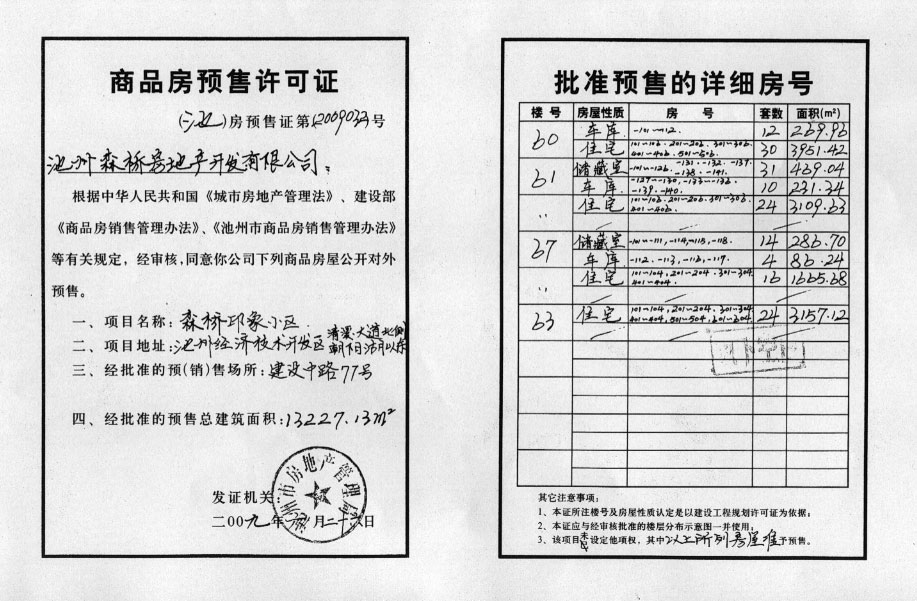 商品房预售许可证
(池)房预售证第(2009032号
池州森桥房地产开发有限公司:
根据中华人民共和国《城市房地产管理法》、建设部
《商品房销售管理办法》、《池州市商品房销售管理办法》
等有关规定,经审核,同意你公司下列商品房屋公开对外
预售。
一、项目名称:森桥印象小区
二、项目地址:池州经济技术开发区清溪大道北侧
三、经批准的预(销)售场所:建设中路77号
四、经批准的预售总建筑面积:13227.13m²
发证机关:
池州市房地产管理局
二00九年 月二十六日
批准预售的详细房号
楼号 房屋性质 房号 套数 面积(m²)
60 车库 -101~-112. 12 269.96
住宅 101~106. 201~206. 301~306. 401~406. 501~506. 30 3951.42
61 储藏室 -101~-126. -131. -132. -137. -138. -141. 31 469.04
车库 -127~-130. -133~-136. -139. -140. 10 231.34
〃 住宅 101~106. 201~206. 301~306. 401~406. 24 3109.63
67 储藏室 -101~-111, -114, -115, -118. 14 286.70
车库 -112. -113, -116, -117. 4 86.24
〃 住宅 101~104, 201~204. 301~304 401~404. 16 1665.68
63 住宅 101~104, 201~204. 301~304 401~404, 501~504. 601~604 24 3157.12
其它注意事项:
1、本证所注楼号及房屋性质认定是以建设工程规划许可证为依据;
2、本证应与经审核批准的楼层分布示意图一并使用;
3、该项目未设定他项权,其中以上所列房屋准予预售。